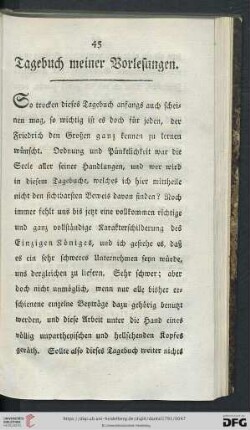 45
Tagebuch meiner Vorlesungen.
So trocken dieses Tagebuch anfangs auch schei-
nen mag, so wichtig ist es doch für jeden, der
Friedrich den Großen ganz kennen zu lernen
wünscht. Ordnung und Pünktlichkeit war die
Seele aller seiner Handlungen, und wer wird
in diesem Tagebuche, welches ich hier mittheile
nicht den sichtbarsten Beweis davon finden? Noch
immer fehlt uns bis jetzt eine vollkommen richtige
und ganz vollständige Karakterschilderung des
Einzigen Königes, und ich gestehe es, daß
es ein sehr schweres Unternehmen seyn würde,
uns dergleichen zu liefern. Sehr schwer; aber
doch nicht unmöglich, wenn nur alle bisher er-
schienene einzelne Beyträge dazu gehörig benutzt
werden, und diese Arbeit unter die Hand eines
völlig unpartheyischen und hellsehenden Kopfes
geräth. Sollte also dieses Tagebuch weiter nichts
UNIVERSITÄTS-
BIBLIOTHEK
HEIDELBERG
DFG